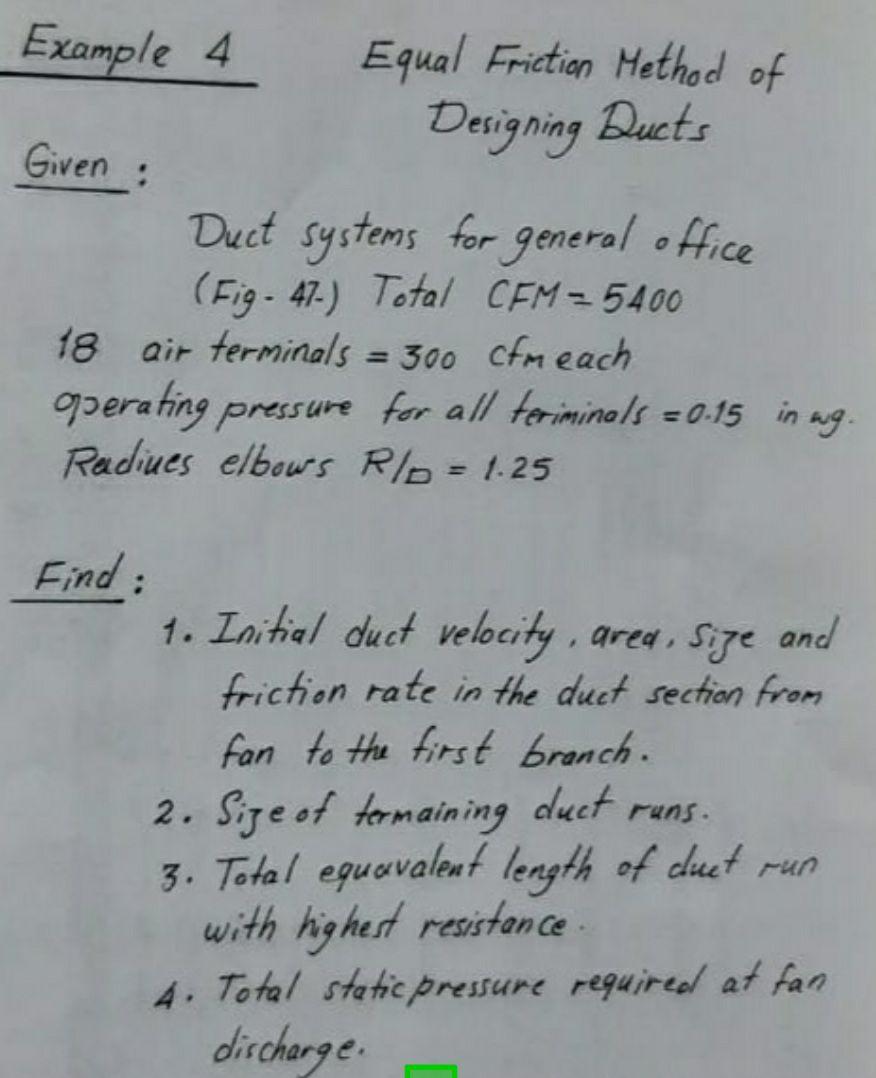 Example 4
Equal Friction Method of
Designing Ducts
Given :
Duct systems for general office
(Fig - 47-) Total CFM = 5400
18 air terminals = 300 cfm each
operating pressure for all teriminals = 0.15 in wg.
Radiues elbows R/D = 1.25
Find :
1. Initial duct velocity, area, Size and
friction rate in the duct section from
fan to the first branch.
2. Size of termaining duct runs.
3. Total equavalent length of duct run
with highest resistance.
4. Total static pressure required at fan
discharge.